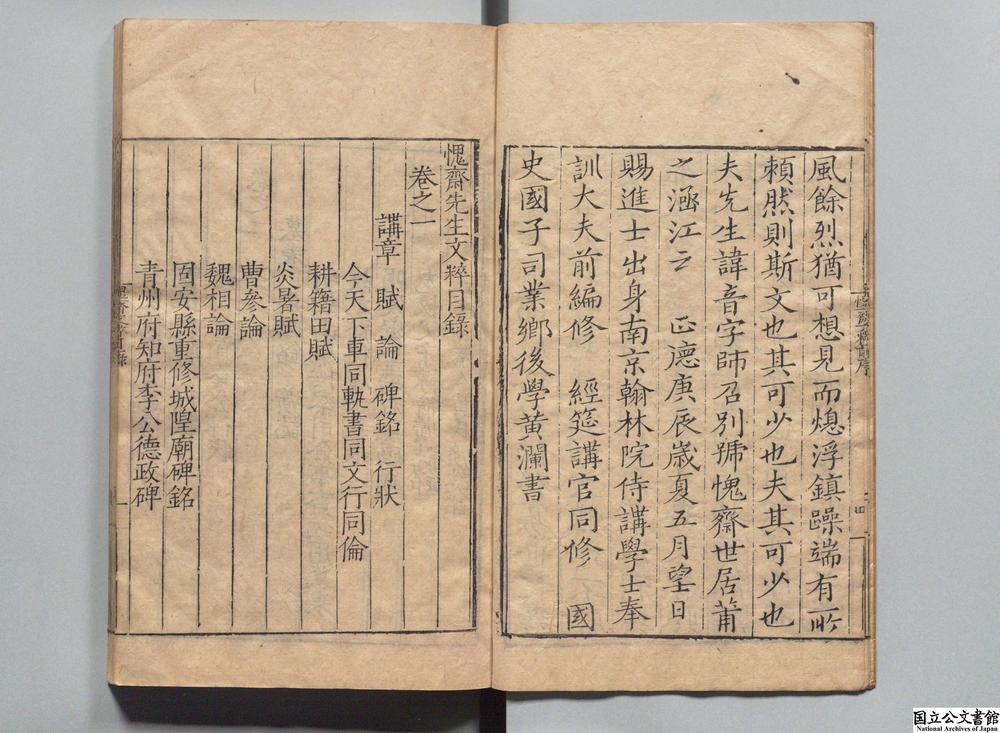 風餘烈猶可想見而熄浮鎮躁端有所
頼然則斯文也其可少也夫其可少也
夫先生諱音字師召別號愧齋世居莆
之涵江云 正德庚辰歲夏五月望日
賜進士出身南京翰林院侍講學士奉
訓大夫前編修 經筵講官同修 國
史國子司業鄉後學黄瀾書
愧齋先生文粹目錄
卷之一
講章 賦 論 碑銘 行狀
今天下車同軌書同文行同倫
耕籍田賦
炎暑賦
曹參論
魏相論
固安縣重修城隍廟碑銘
青州府知府李公德政碑
一
国立公文書館
National Archives of Japan